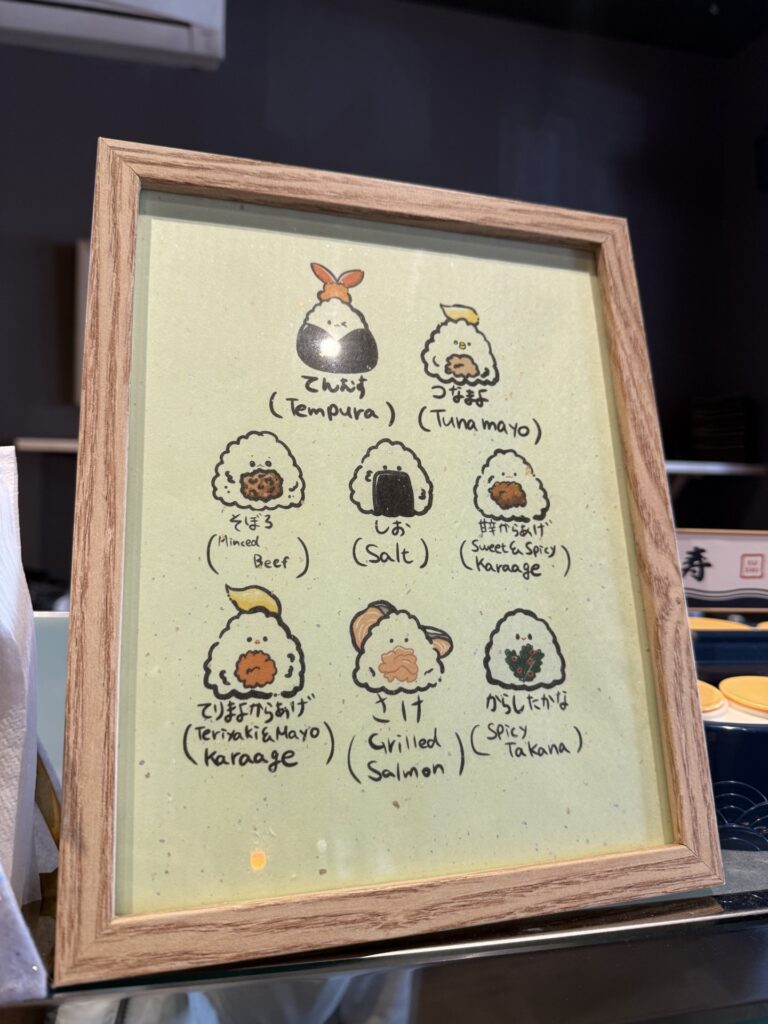 てんむす
(Tempura)
つなまよ
(Tuna mayo)
そぼろ
(Minced
Beef)
しお
(Salt)
甘辛からあげ
(Sweet & Spicy
Karaage)
てりまよからあげ
(Teriyaki & Mayo
Karaage)
さけ
(Grilled
Salmon)
からしたかな
(Spicy
Takana)
寿